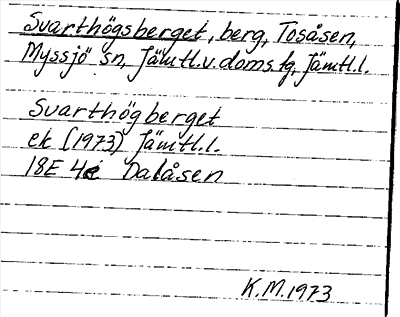 Svarthögsberget, berg, Tosåsen,
Myssjö sn, Jämtl.v.doms.lg, Jämtl.l.
Svarthögberget
ek (1973) Jämtl.l.
18E 4e Dalåsen
K.M.1973